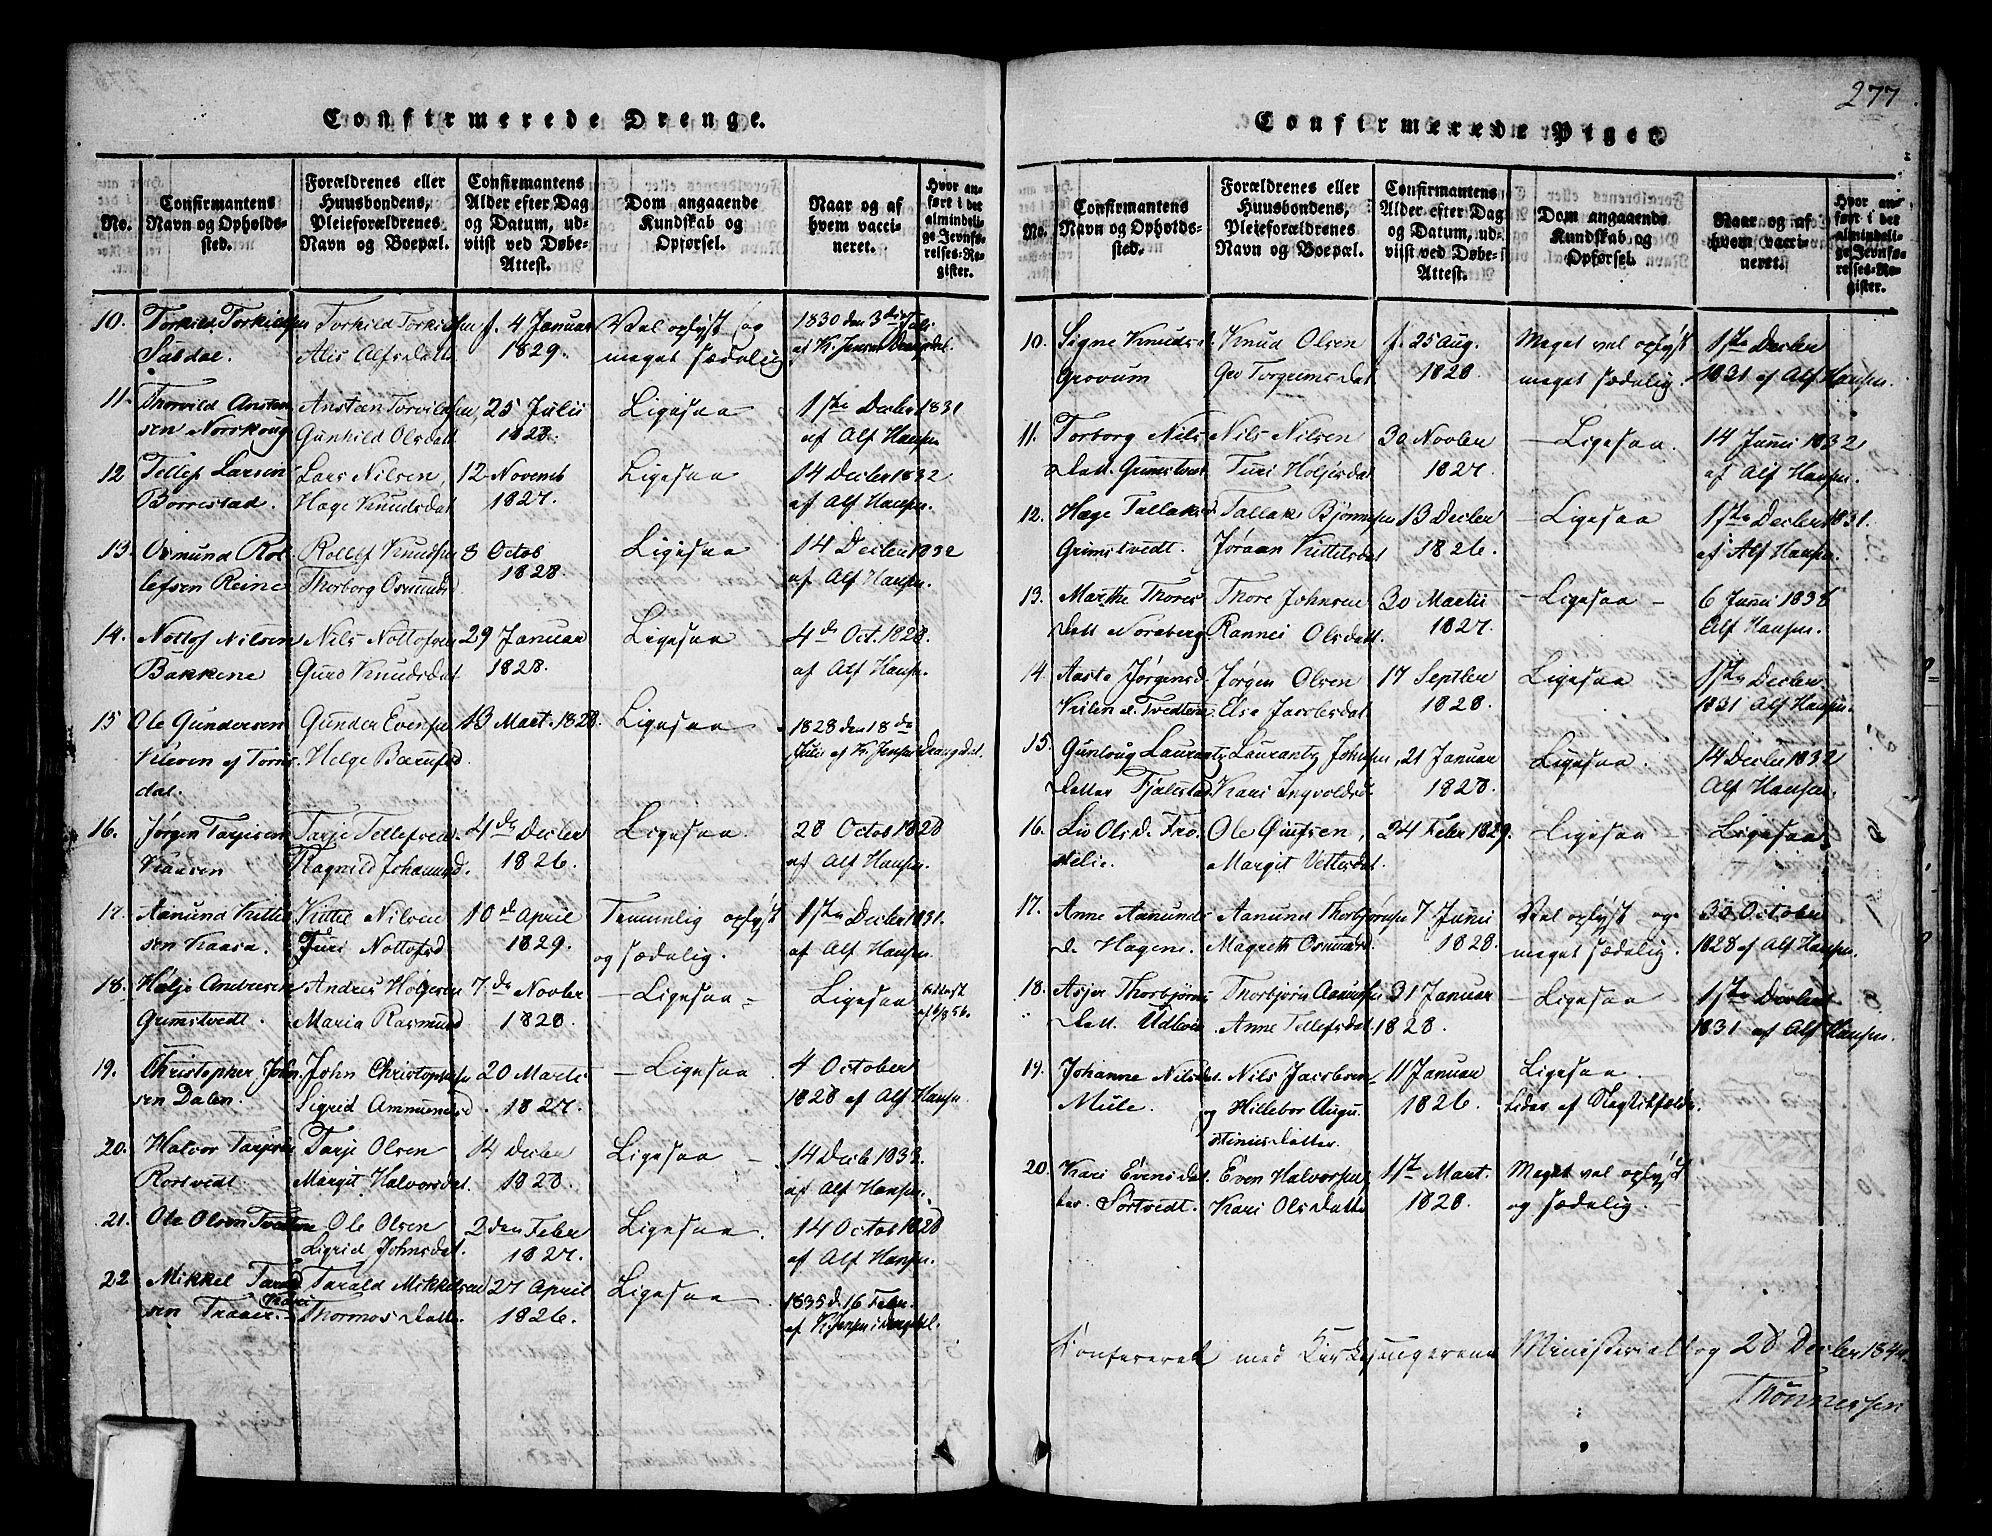 277
Confirmerede Drenge.
No.
Confirmantens Navn og Opholdssted.
Forældrenes eller Huusbondens, Pleieforældrenes Navn og Boepæl.
Confirmantens Alder efter Dag og Datum, udviist ved Døbe-Attest.
Dom angaaende Kundskab og Opførsel.
Naar og af hvem vaccineret.
Hvor anført i det almindelige Jevnførelses-Register.
10. Torkild Torkilsen f. 4 Januar Vel oplyst og 1830 den 3die
Alis Alfsdatt 1829. meget sædelig
11. Thorvild Ansten Anstæn Torvildsen, 25 Julii Ligesaa 1ste Decbr 1831
sen Gunhild Olsdatt 1828. af Alf Hansen
12 Tellef Larsen Lars Nilsen, 12 Novemb Ligesaa 14 Decbr 1832
Borrestad. Hæge Knudsdat 1827. af Alf Hansen.
13. Osmund Rol Rollef Knudsen 8 Octob Ligesaa 14 Decbr 1832
lefsen Reine Thorborg Osmunds 1828. af Alf Hansen.
14. Nottof Nilsen Nils Nottofsen 29 Januar Ligesaa 4de Oct. 1828.
Bakkene Guro Knudsdat 1828. af Alf Hansen.
15 Ole Gundersen Gunder Evensen 13 Mart. 1828. Ligesaa 1828 den 18de
Kleven af Torris Helge
dal.
16. Jørgen Tarjesen Tarje Tellefsen 4de Decbr Ligesaa. 28 Octob 1828
Kaasen Ragnild 1826. af Alf Hansen.
17. Aanund Kittel Kittel Nilsen 10de April Temmelig oplyst 1ste Decbr 1831.
sen Kaasa. Turi Nottofsd. 1829. og sædelig. af Alf Hansen.
18. Andresen Andres 7de Novbr Ligesaa Ligesaa
Grimstvedt. Maria Rasmusd 1828.
19. Christopher John John Christophersen 20 Marti Ligesaa 4 October
sen Dalen. Sigrid 1827. 1828 af Alf Hansen.
20. Halvor Tarjesen Tarje Olsen 14 Decbr Ligesaa 14 Decb 1833.
Rorstvedt Margit Halvorsdat. 1828. af Alf Hansen.
21. Ole Olsen Ole Olsen 2den Febr Ligesaa. 14 Octob 1828
Sigrid Johnsdat. 1827. af Alf Hansen.
22 Mikkel Tarald Tarald Mikkelsen 27 April Ligesaa 1835 d. 16 Febr.
sen Kari Thormosdatt. 1826.
Confirmerede Piger.
No.
Confirmantens Navn og Opholdssted.
Forældrenes eller Huusbondens, Pleieforældrenes Navn og Boepæl.
Confirmantens Alder efter Dag og Datum, udviist ved Døbe-Attest.
Dom angaaende Kundskab og Opførsel.
Naar og af hvem vaccineret.
Hvor anført i det almindelige Jevnførelses-Register.
10. Signe Knuds Knud Olsen f. 25 Aug. Meget vel oplyst 1ste Decbr
Grovum Gro Torgrimsdat 1828. meget sædelig. 1831 af Alf Hansen.
11. Torborg Nils Nils Nilsen 30 Novbr Ligesaa. 14 Junii 1832
Datt. Grimstvedt Turi 1827. af Alf Hansen.
12. Hæge Tallaks Tallak Bjørnsen 13 Decbr Ligesaa 1ste Decbr 1831.
Grimstvedt. Jøraan Kittelsdat 1826. af Alf Hansen.
13. Marthe Thores Thore Johnsen 30 Martii Ligesaa 6 Junii 1838
Datt Noreberg Rannei Olsdatt. 1827. Alf Hansen.
14. Aaste Jørgensd. Jørgen Olsen 17 Septbr Ligesaa 1ste Decbr
Else Jacobsdat 1828. 1831 Alf Hansen.
15. Gunloug Laurantz Laurantz Johnsen, 21 Januar Ligesaa. 14 Decbr 1832
datter Tjalstad Kari Ingvoldsd. 1828. Alf Hansen.
16. Liv Olsd. Fro Ole 24 Febr 1829. Ligesaa Ligesaa
stelie. Margit Vetlesdat.
17. Anne Aanunds Aanund Thorbjørnsen 7 Junii Vel oplyst og 30 October
d. Hagene. Magreth Osmunds. 1828. meget sædelig. 1828 af Alf Hansen.
18. Asjer Thorbjørns Thorbjørn Aanunsen 31 Januar Ligesaa 1ste Decbr
Datt. Anne Tellefsdat. 1828. 1831 af Alf Hansen.
19. Johanne Nilsdat. Nils Jacobsen 11 Januar Ligesaa.
Mule. og Hillebor Augu 1826. Lider af
stinusdatter.
20. Kari Evensdat Even Halvorsen 1ste Mart. Meget vel oplyst
ter. Sørtvedt. Kari Olsdatte 1828. og sædelig.
Confereret med Kirkesangerens Ministerialbog 28 Decbr 1844.
Thønnessen